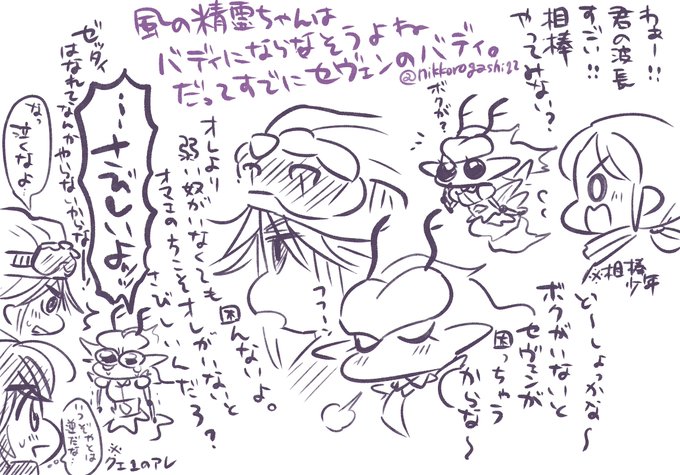 わぁー!!
君の波長
すごい!!
相棒
やってみない?
※相棒
少年
風の精霊ちゃんは
バディにならなそうよね
だってすでにセヴェンのバディ。
@nikkorogashi22
ボクが?
どーしよっかな〜
ボクがいないと
セヴェンが
困っちゃう
からな〜
オレより
弱い奴がいなくても
困んないよ。
オマエのちこそオレがいないと
さびしいんだろ?
…さびしいよッ
ゼッタイ
はなれてなんかやらないからな
な、
泣くなよ
いつぞやとは
逆だな…
※
クエ1のアレ